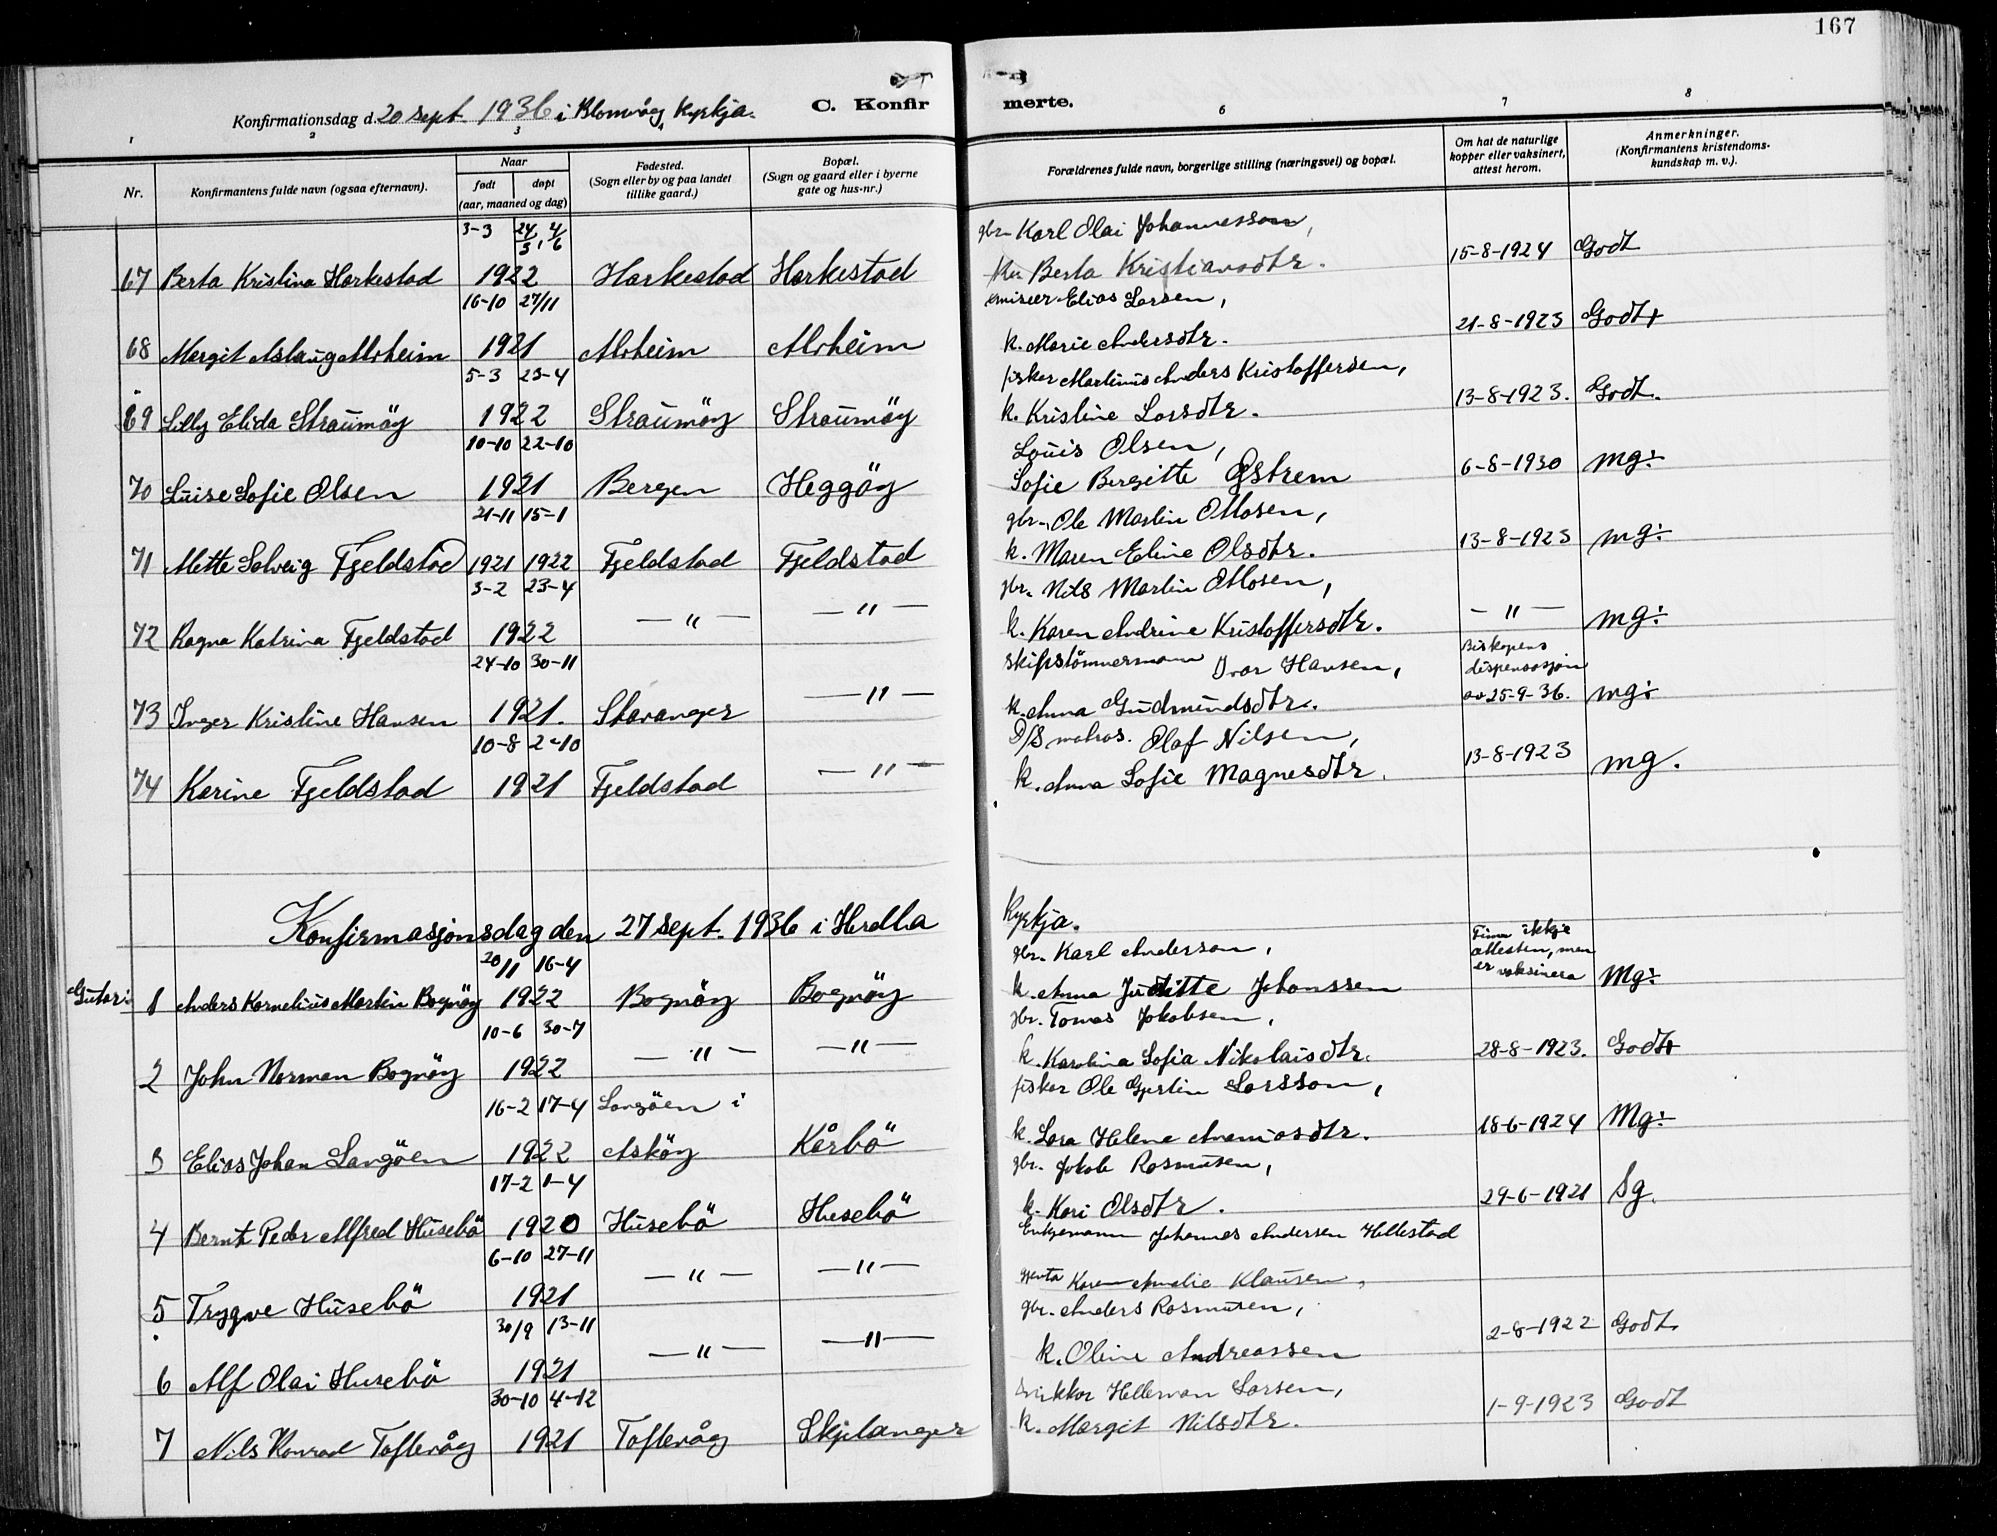 167
Konfirmationsdag d. 20 sept. 1936 i Blomvåg Kyrkja.
C. Konfir merte.
1 2 3 4 6 7 8
Nr.
Konfirmantens fulde navn (ogsaa efternavn).
Naar
født døpt
(aar, maaned og dag)
Fødested.
(Sogn eller by og paa landet
tillike gaard.)
Bopæl.
(Sogn og gaard eller i byerne
gate og hus-nr.)
Forældrenes fulde navn, borgerlige stilling (næringsvei) og bopæl.
Om hat de naturlige
kopper eller vaksinert,
attest herom.
Anmerkninger.
(Konfirmantens kristendoms-
kundskap m. v.).
3-3 24/3, 4/6 gbr. Karl Olai Johannessen,
67 Berta Kristina Harkestad 1922 Harkestad Harkestad Berta Kristiansdtr. 15-8-1924 Godt
16-10 27/11 Elias Larsen,
68 Margit Aslaug Alvheim 1921 Alvheim Alvheim k. Marie Andersdtr. 21-8-1923 Godt+
5-3 23-4 fisker Martinus Anders Kristoffersen,
69 Lilly Elida Straumöy 1922 Straumöy Straumöy k. Kristine Larsdtr. 13-8-1923. Godt.
10-10 22-10 Louis Olsen,
70 Luise Sofie Olsen 1921 Bergen Heggöy Sofie Bergitte Østrem 6-8-1930 mg÷
21-11 15-1 gbr. Ole Martin Mosen,
71 Mette Solveig Fjeldstad 1921 1922 Fjeldstad Fjeldstad k. Maren Eline Olsdtr. 13-8-1923 mg÷
3-2 23-4 gbr. Nils Martin Mosen,
72 Ragna Katrina Fjeldstad 1922 — " — — " — k. Karen Andrine Kristoffersdtr. — " — mg÷
24-10 30-11 skipstömmermann Ivar Hansen, Biskopens dispensasjon
73 Inger Kristine Hansen 1921. Stavanger — " — k. Anna Gudmundsdtr. av 25-9-36. mg÷
10-8 2-10 D/S matros. Olaf Nilsen,
74 Karine Fjeldstad 1921 Fjeldstad — " — k. Anna Sofie Magnesdtr. 13-8-1923 mg.
Konfirmasjonsdag den 27 sept. 1936 i Herdla Kyrkja.
20/11 16-4 gbr. Karl Anderson, ikkje attesten, men
Gutar: 1 Anders Kornelius Martin Bognöy 1922 Bognöy Bognöy k. Anna Juditte Johanssen er vaksinera Mg÷
10-6 30-7 gbr. Tomas Jakobsen,
2 John Norman Bognöy 1922 — " — — " — k. Karolina Sofia Nikolaisdtr. 28-8-1923. Godt+
16-2 17-4 Langöen i fisker Ole Gjertin Larsson,
3 Elias Johan Langöen 1922 Asköy Kårbö k. Lara Helene Ananiasdtr. 18-6-1924 Mg÷
17-2 1-4 gbr. Jakob Rasmusen,
4 Bernt Peder Alfred Husebö 1920 Husebö Husebö k. Kari Olsdtr. 29-6-1921 Sg.
6-10 27-11 Enkjemann Johannes Andersen Hellestad
5 Trygve Husebö 1921 — " — — " — gjenta Karen Amalie Klausen,
30/9 13-11 gbr. Anders Rasmusen,
6 Alf Olai Husebö 1921 — " — — " — k. Oline Andreassen 2-8-1922 Godt
30-10 4-12 Helleman Larsen,
7 Nils Konrad Tofteråg 1921 Tofteråg Skjelanger k. Margit Nilsdtr. 1-9-1923 Godt